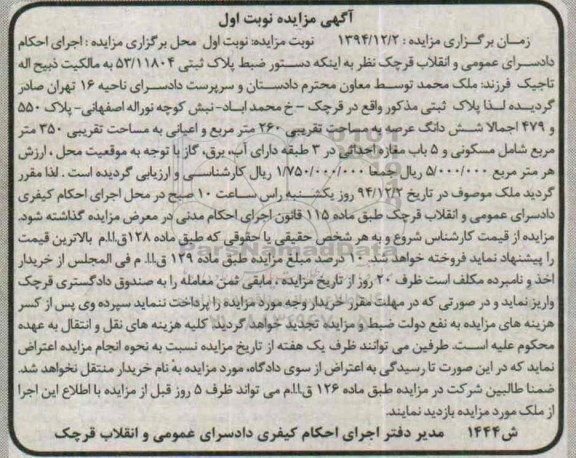 آگهی مزایده نوبت اول
زمان برگزاری مزایده : ۱۳۹۴/۱۲/۲ نوبت مزایده: نوبت اول محل برگزاری مزایده : اجرای احکام
دادسرای عمومی و انقلاب قرچک نظر به اینکه دستور ضبط پلاک ثبتی ۵۳/۱۱۸۰۴ به مالکیت ذبیح اله
تاجیک فرزند: ملک محمد توسط معاون محترم دادستان و سرپرست دادسرای ناحیه ۱۶ تهران صادر
گردیده لذا پلاک ثبتی مذکور واقع در قرچک – خ محمد اباد- نبش کوچه نوراله اصفهانی- پلاک ۵۵۰
و ۴۷۹ اجمالا شش دانگ عرصه به مساحت تقریبی ۲۶۰ متر مربع و اعیانی به مساحت تقریبی ۳۵۰ متر
مربع شامل مسکونی و ۵ باب مغازه احداثی در ۳ طبقه دارای آب، برق، گاز با توجه به موقعیت محل ، ارزش
هر متر مربع ۵/۰۰۰/۰۰۰ ریال جمعا ۱/۷۵۰/۰۰۰/۰۰۰ ریال کارشناسی و ارزیابی گردیده است . لذا مقرر
گردید ملک موصوف در تاریخ ۹۴/۱۲/۲ روز یکشنبه راس ساعت ۱۰ صبح در محل اجرای احکام کیفری
دادسرای عمومی و انقلاب قرچک طبق ماده ۱۱۵ قانون اجرای احکام مدنی در معرض مزایده گذاشته شود.
مزایده از قیمت کارشناس شروع و به هر شخص حقیقی یا حقوقی که طبق ماده ۱۲۸ ق.ا.ا.م بالاترین قیمت
را پیشنهاد نماید فروخته خواهد شد. ۱۰ درصد مبلغ مزایده طبق ماده ۱۲۹ ق.ا.ا. م فی المجلس از خریدار
اخذ و نامبرده مکلف است ظرف ۲۰ روز از تاریخ مزایده ، مابقی ثمن معامله را به صندوق دادگستری قرچک
واریز نماید و در صورتی که در مهلت مقرر خریدار وجه مورد مزایده را پرداخت ننماید سپرده وی پس از کسر
هزینه های مزایده به نفع دولت ضبط و مزایده تجدید خواهد گردید. کلیه هزینه های نقل و انتقال به عهده
محکوم علیه است. طرفین می توانند ظرف یک هفته از تاریخ مزایده نسبت به نحوه انجام مزایده اعتراض
نماید که در این صورت تا رسیدگی به اعتراض از سوی دادگاه، مورد مزایده به نام خریدار منتقل نخواهد شد.
ضمنا طالبین شرکت در مزایده طبق ماده ۱۲۶ ق.ا.ا.م می تواند ظرف ۵ روز قبل از مزایده با اطلاع این اجرا
از ملک مورد مزایده بازدید نمایند.
ش۱۴۴۴ مدیر دفتر اجرای احکام کیفری دادسرای عمومی و انقلاب قرچک